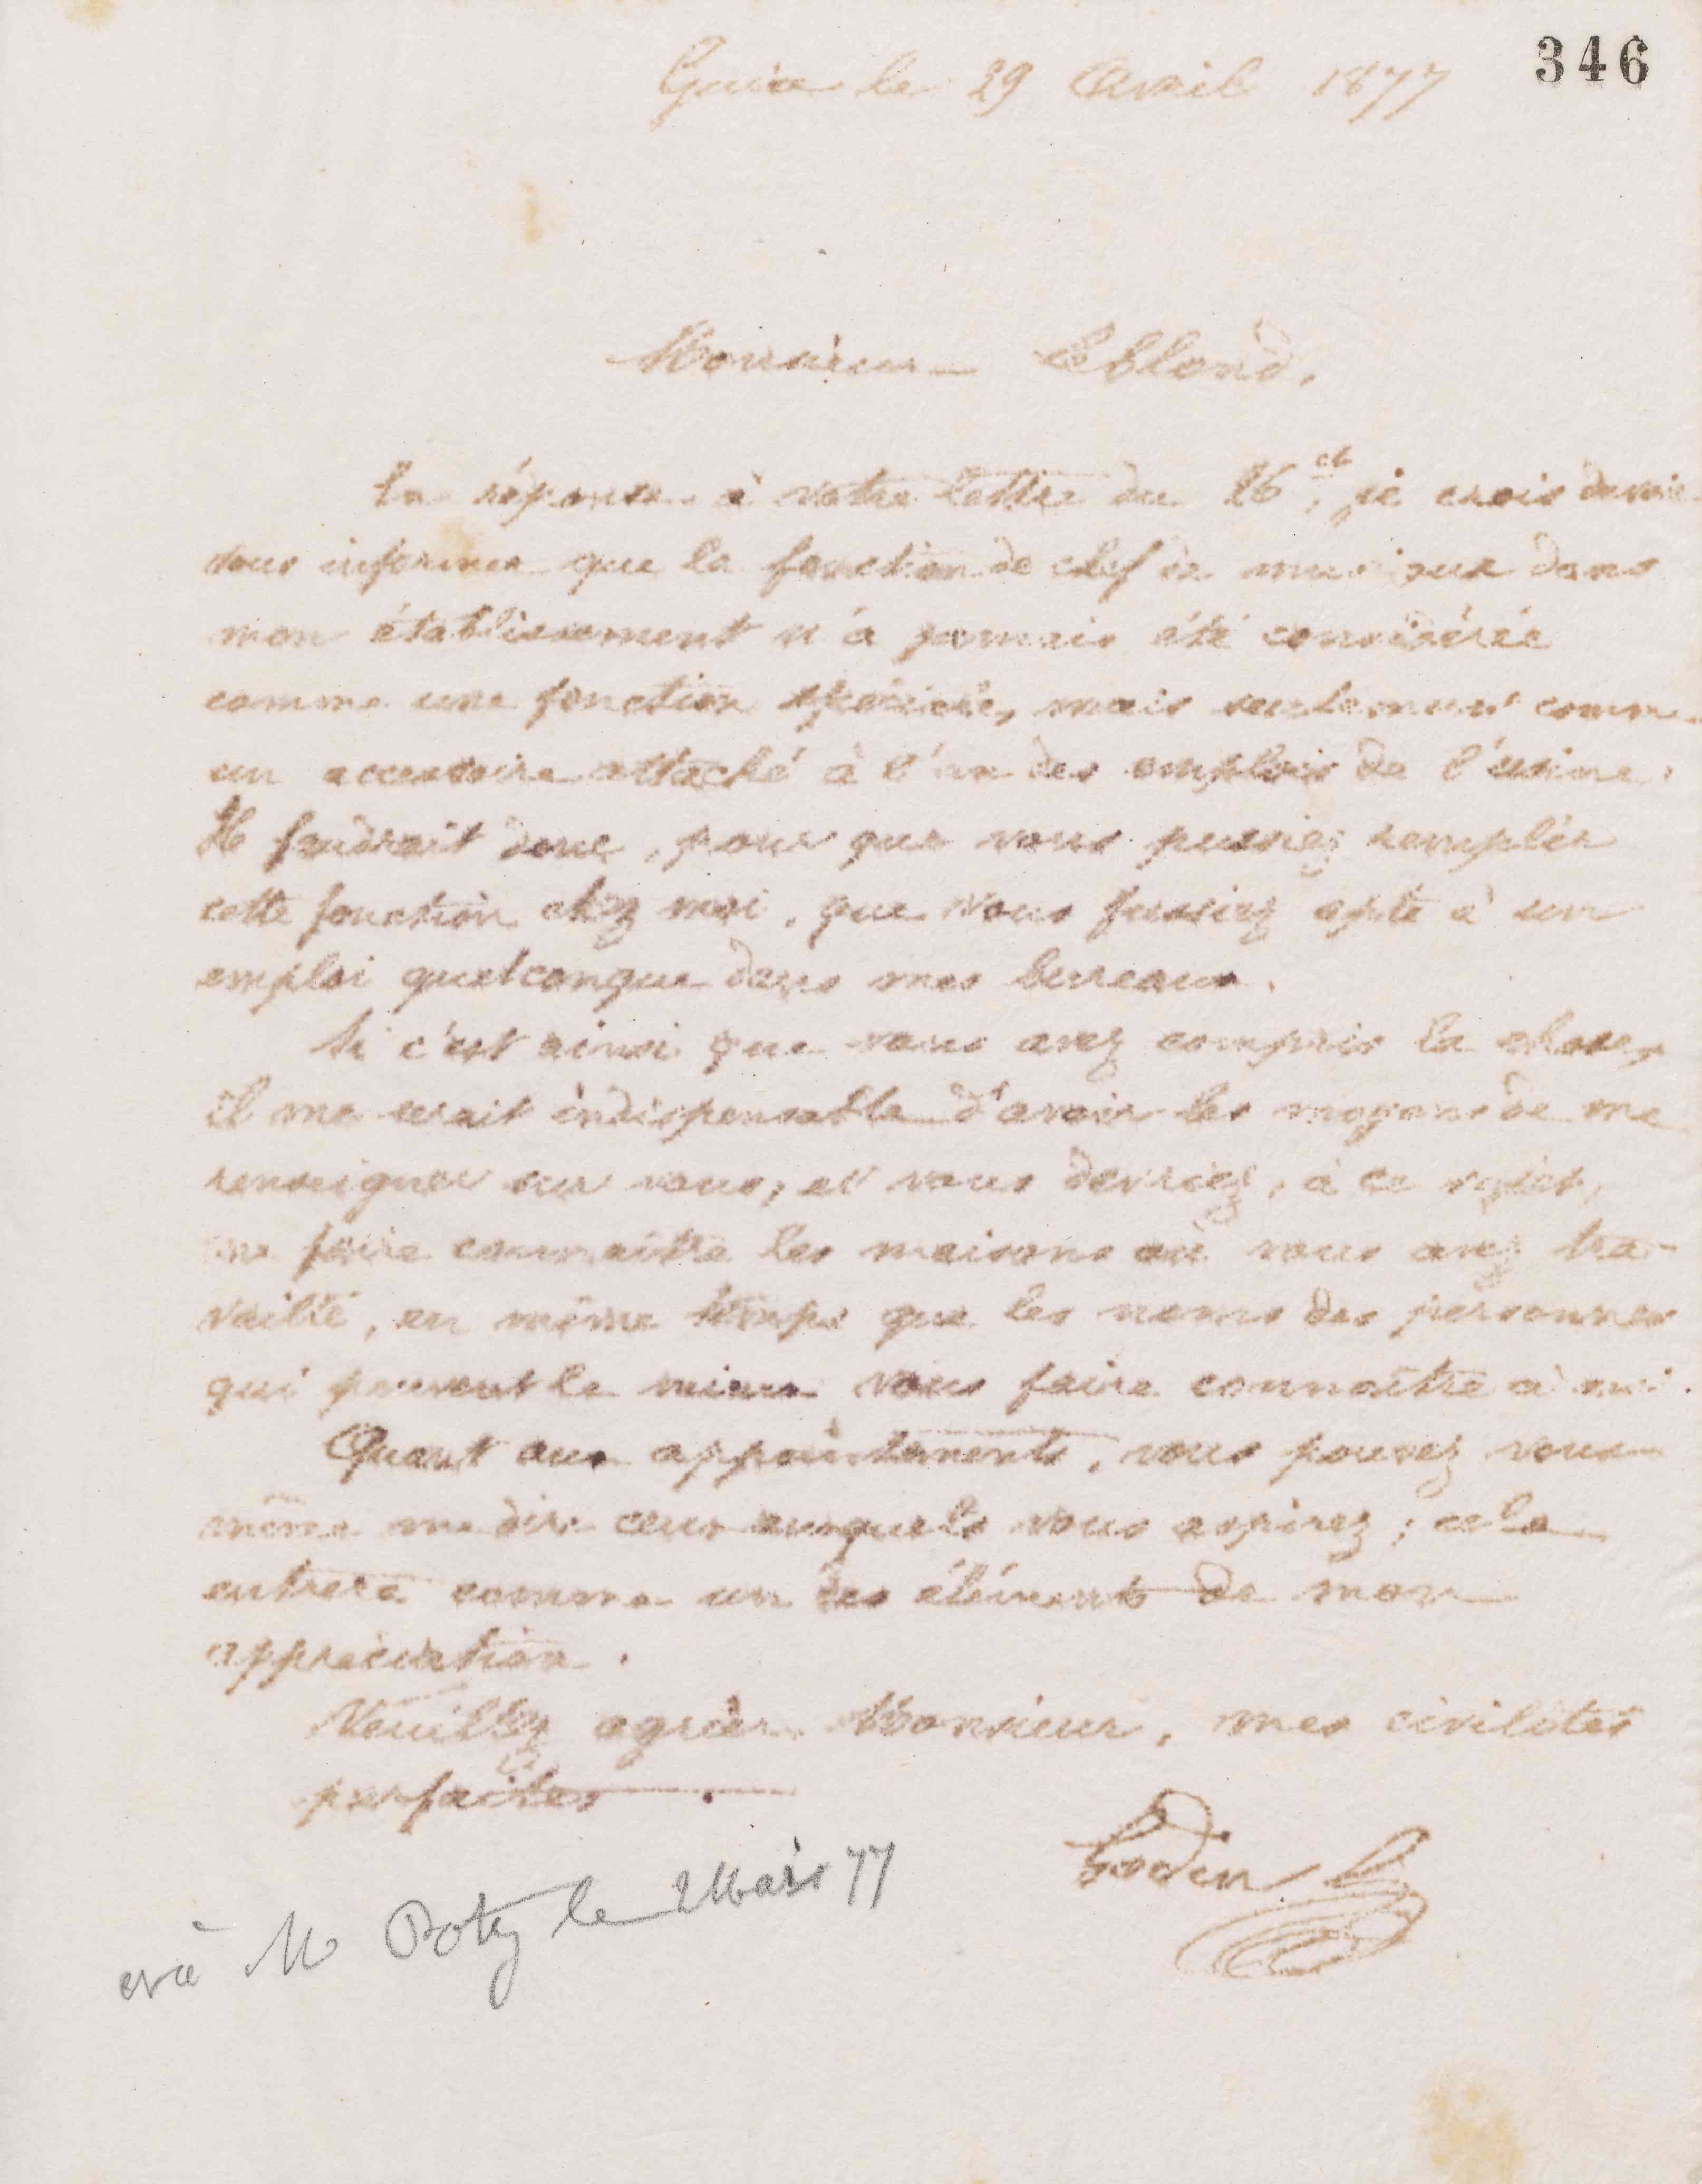 346
Guise le 29 Avril 1877
Monsieur Leblond,
En réponse à votre lettre du 26 ct, je crois devoir
vous informer que la fonction de chef de musique dans
mon établissement n'a jamais été considérée
comme une fonction spéciale, mais seulement comme
un accessoire attaché à l'un des emplois de l'usine.
Il faudrait donc, pour que vous pussiez remplir
cette fonction chez moi, que vous fussiez apte à un
emploi quelconque dans mes bureaux.
Si c'est ainsi que vous avez compris la chose,
il me serait indispensable d'avoir les moyens de me
renseigner sur vous, et vous devriez, à ce sujet,
me faire connaître les maisons où vous avez tra-
vaillé, en même temps que les noms des personnes
qui peuvent le mieux vous faire connaître à moi.
Quant aux appointements, vous pouvez vous
même me dire ceux auxquels vous aspirez ; cela
entrera comme un des éléments de mon
appréciation.
Veuillez agréer Monsieur, mes civilités
parfaites.
Godin
M Potez le 2 Mars 77